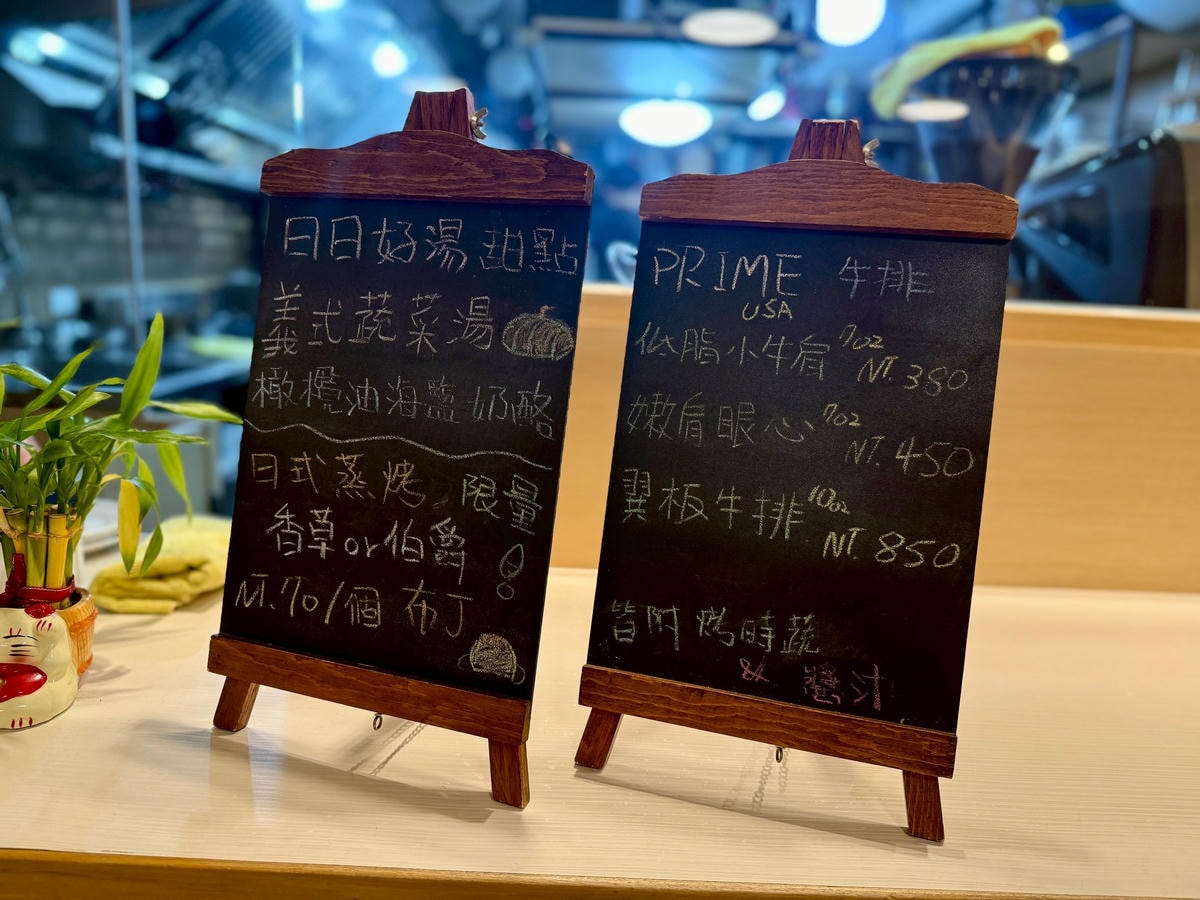 日日好湯.甜點
義式蔬菜湯
橄欖油海鹽奶酪
日式蒸烤 限量
香草or伯爵
NT.70/個 布丁
PRIME 牛排
USA
低脂小牛肩 7oz
NT.380
嫩肩眼心 7oz
NT.450
翼板牛排 10oz
NT.850
皆附 烤時蔬
& 醬汁